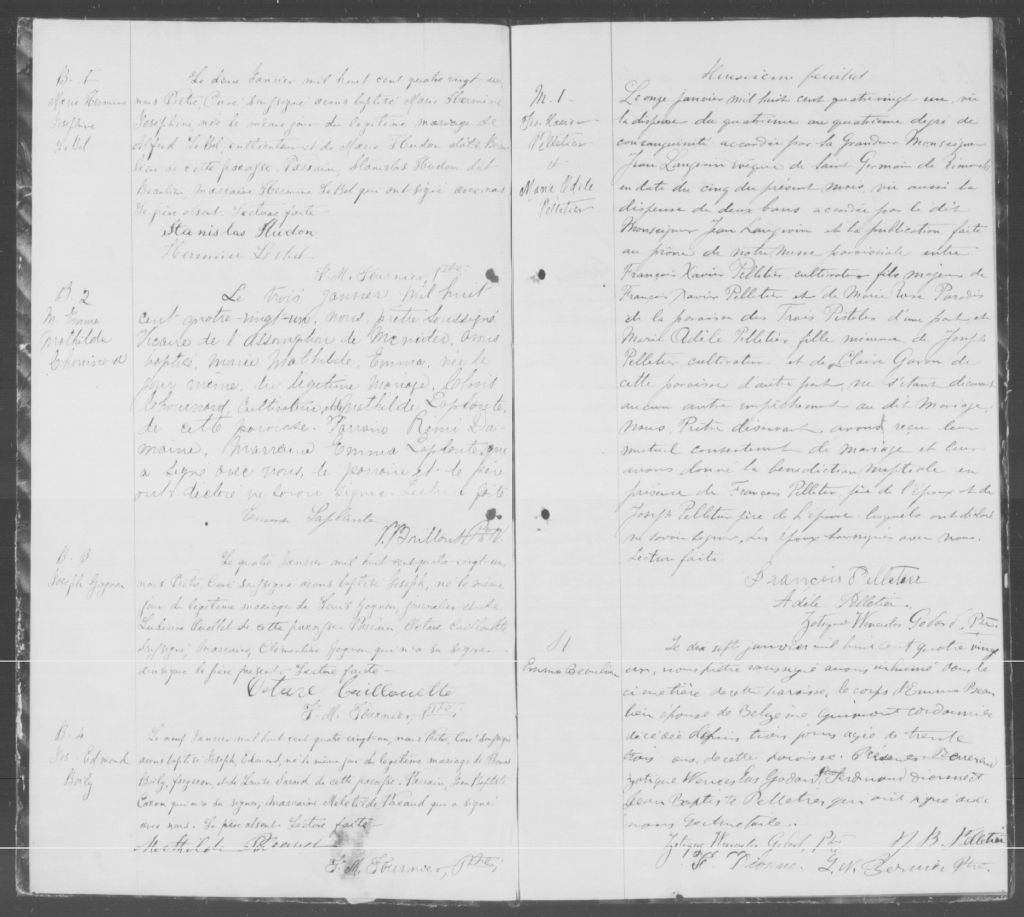 B. 1
Marie Hermine
Josephine
LeBel
Le deux Janvier mil huit cent quatre vingt un,
nous Prêtre, Curé soussigné avons baptisé Marie Hermine
Joséphine, née le même jour du légitime mariage de
Alfred LeBel, cultivateur et de Marie Hudon dite Beau
lieu de cette paroisse. Parrain, Stanislas Hudon dit
Beaulieu, marraine Hermine LeBel qui ont signé avec nous
Le père absent. Lecture faite
Stanislas Hudon
Hermine Lebel
F. M. Fournier, Ptre
B. 2
M. Emma
Mathilda
Chouinard
Le trois janvier mil huit
cent quatre-vingt-un, nous, prêtre soussigné
Vicaire de l'Assomption de avons
baptisé, marie Mathilde, Emma, née le
jour même, du légitime mariage,
Chouinard, Cultivateur, et Mathilde Laplante,
de cette paroisse. Parrain Remi Da-
maine, Marraine Emma Laplante, qui
a signé avec nous, le parrain et le père
ont déclaré ne savoir signer. Lecture faite
Emma Laplante
Ptre V.
B. 3
Joseph Gagnon
Le quatre Janvier mil huit cent quatre-vingt-un,
nous Prêtre, Curé soussigné avons baptisé Joseph, né le même
jour du légitime mariage de Louis Gagnon, journalier et de
Ouellet de cette paroisse. Parrain, Octave Caillouette
soussigné marraine, Clémentine Gagnon qui n'a su signer
ainsi que le père présent. Lecture faite
Octave Caillouette
F. M. Fournier, Ptre
B. 4
Jos. Edmond
Boily
Le neuf Janvier mil huit cent quatre vingt-un, nous Prêtre, Curé soussigné
avons baptisé Joseph, Edmond, né le même jour du légitime mariage de
Boily, forgeron, et de Louise de cette paroisse. Parrain, Jean Baptiste
Caron qui n'a su signer, marraine qui a signé
avec nous. Le père absent. Lecture faite
Mathilde
F. M. Fournier, Ptre
Deuxième feuillet
M. 1
Frs. Xavier
Pelletier
et
Marie Adèle
Pelletier
Le onze janvier mil huit cent quatre vingt un, vu
la dispense du quatrième au quatrième degré de
consanguinité accordée par Sa Grandeur Monseigneur
Jean Langevin évêque de Saint Germain de Rimouski
en date du cinq du présent mois, vu aussi la
dispense de deux bans accordée par le dit
Monseigneur Jean Langevin et la publication faite
au prône de notre messe paroissiale entre
François Xavier Pelletier cultivateur fils majeur de
François Xavier Pelletier et de Marie Rose Paradis
de la paroisse des Trois Pistoles d'une part, et
Marie Adèle Pelletier, fille mineure de Joseph
Pelletier cultivateur et de Claire Gavon de
cette paroisse d'autre part, ne s'étant découvert
aucun autre empêchement au dit mariage,
Nous, Prêtre désservant, avons reçu leur
mutuel consentement de mariage et leur
avons donné la bénédiction nuptiale en
présence de François Pelletier, père de l'époux et de
Joseph Pelletier père de l'épouse lesquels ont déclaré
ne savoir signer, les époux soussignés avec nous.
Lecture faite.
Francois Pelletier
Adèle Pelletier
Zotique Wenceslas Godard, Ptre
S 1
Emma Beaulieu
Le dix sept janvier mil huit cent quatre vingt
un, nous prêtre soussigné avons inhumé dans le
cimetière de cette paroisse, le corps d'Emma Beau
lieu épouse de Guimont cordonnier
décédée depuis trois jours agée de trente
trois ans, de cette paroisse. Présents: Révérend
Zotique Wenceslas Godard, Ferdinand
Jean Baptiste Pelletier qui ont signé avec
nous.
Zotique Wenceslas Godard, Ptre J. B. Pelletier
F. Dionne L. N. Bernier Ptre.